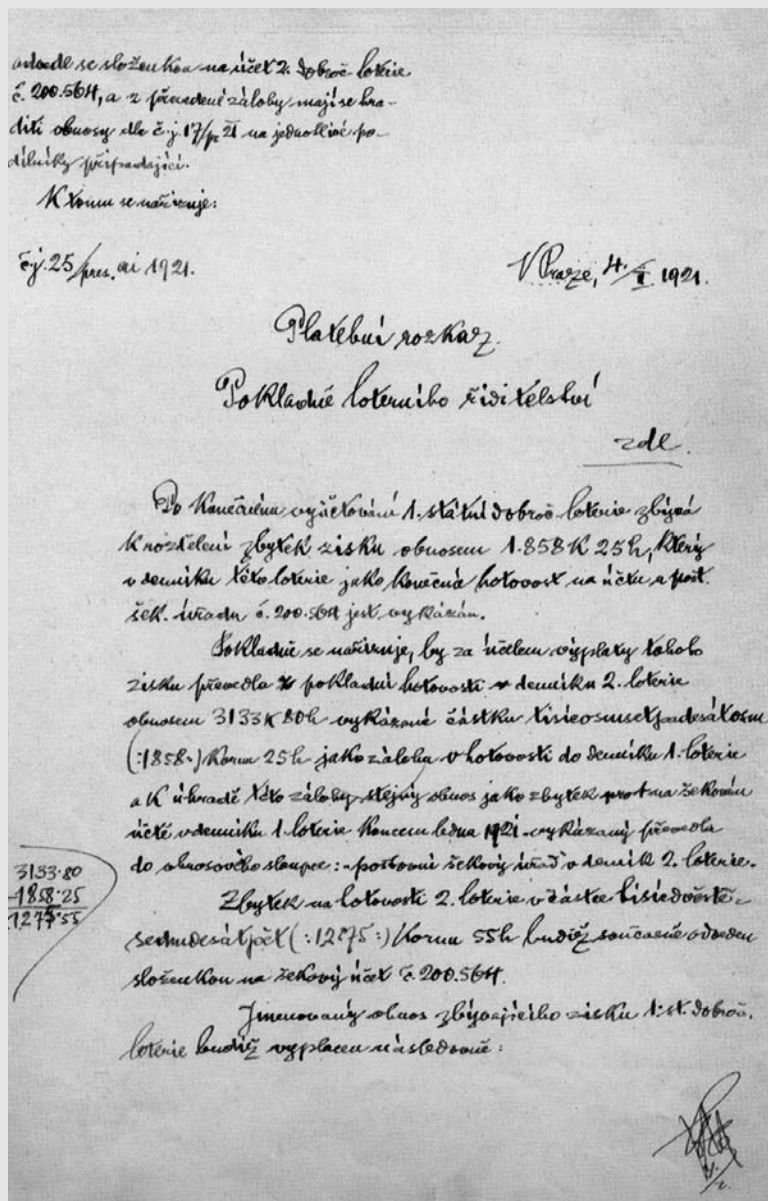 odvede se složenkou na účet 2. dobroč. loterie
č. 200.564, a z převedené zálohy mají se hra-
diti obnosy dle č.j. 17/pr 21 na jednotlivé po-
dílníky připadající.
K tomu se nařizuje:
č.j. 25/pres. ai 1921.
V Praze, 4./I. 1921.
Platební rozkaz.
Pokladně loterního ředitelství
zde.
Po konečném vyúčtování 1. státní dobroč. loterie zbývá
k rozdělení zbytek zisku obnosem 1.858 K 25 h, který
v denníku této loterie jako konečná hotovost na účtu u pošt.
šek. úřadu č. 200.564 jest vykázán.
Pokladně se nařizuje, by za účelem výplaty tohoto
zisku převedla z pokladní hotovosti v denníku 2. loterie
obnosem 3133 K 80 h vykázané částku tisícosmsetpadesátosm
(:1858:) Korun 25 h jako zálohu v hotovosti do denníku 1. loterie
a k úhradě této zálohy stejný obnos jako zbytek na šekovém
účtě v denníku 1. loterie koncem ledna 1921 vykázaný převedla
do obnosového sloupce: poštovní šekový úřad v denník 2. loterie.
3133.80
1858.25
1275.55
Zbytek na hotovosti 2. loterie v částce tisícdvěstě-
sedmdesátpět (:1275:) Korun 55 h budiž současně odveden
složenkou na šekový účet č. 200.564.
Jmenovaný obnos zbývajícího zisku 1. st. dobroč.
loterie budiž vyplacen následovně: